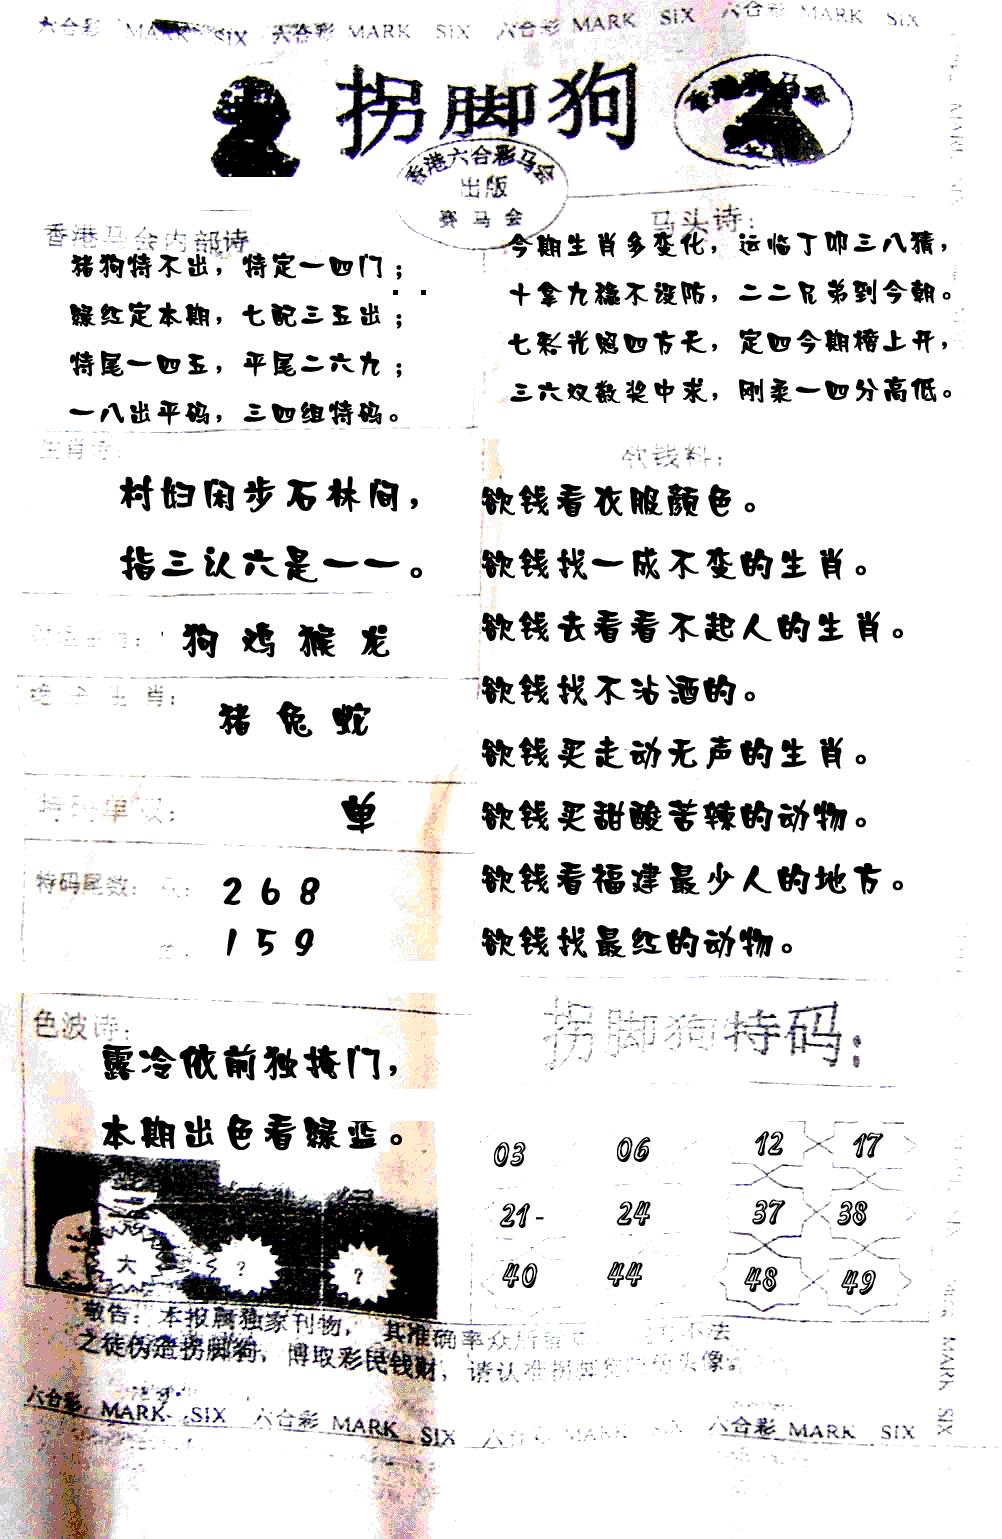 六合彩 MARK SIX 六合彩 MARK SIX 六合彩 MARK SIX 六合彩 MARK SIX
拐脚狗
香港六合彩马会
出版
赛马会
香港马会内部诗
猪狗特不出，特定一四门；
绿红定本期，七配三五出；
特尾一四五，平尾二六九；
一八出平码，三四组特码。
马头诗：
今期生肖多变化，运临丁卯三八猜，
十拿九稳不设防，二二兄弟到今朝。
七彩光照四方天，定四今期榜上开，
三六双数奖中求，刚柔一四分高低。
生肖诗：
村妇闲步石林间，
指三认六是一一。
狗 鸡 猴 龙
生肖：
猪 兔 蛇
特码单双：
单
特码尾数：
2 6 8
1 5 9
欲钱料：
欲钱看衣服颜色。
欲钱找一成不变的生肖。
欲钱去看看不起人的生肖。
欲钱找不沾酒的。
欲钱买走动无声的生肖。
欲钱买甜酸苦辣的动物。
欲钱看福建最少人的地方。
欲钱找最红的动物。
色波诗：
露冷依前独掩门，
本期出色看绿蓝。
大 ? ?
拐脚狗特码：
03 06 12 17
21- 24 37 38
40 44 48 49
敬告：本报属独家刊物，其准确率众所 不法
之徒伪造拐脚狗，博取彩民钱财，请认准拐脚 头像
六合彩 MARK SIX 六合彩 MARK SIX 六合彩 MARK SIX 六合彩 MARK SIX
MARK SIX